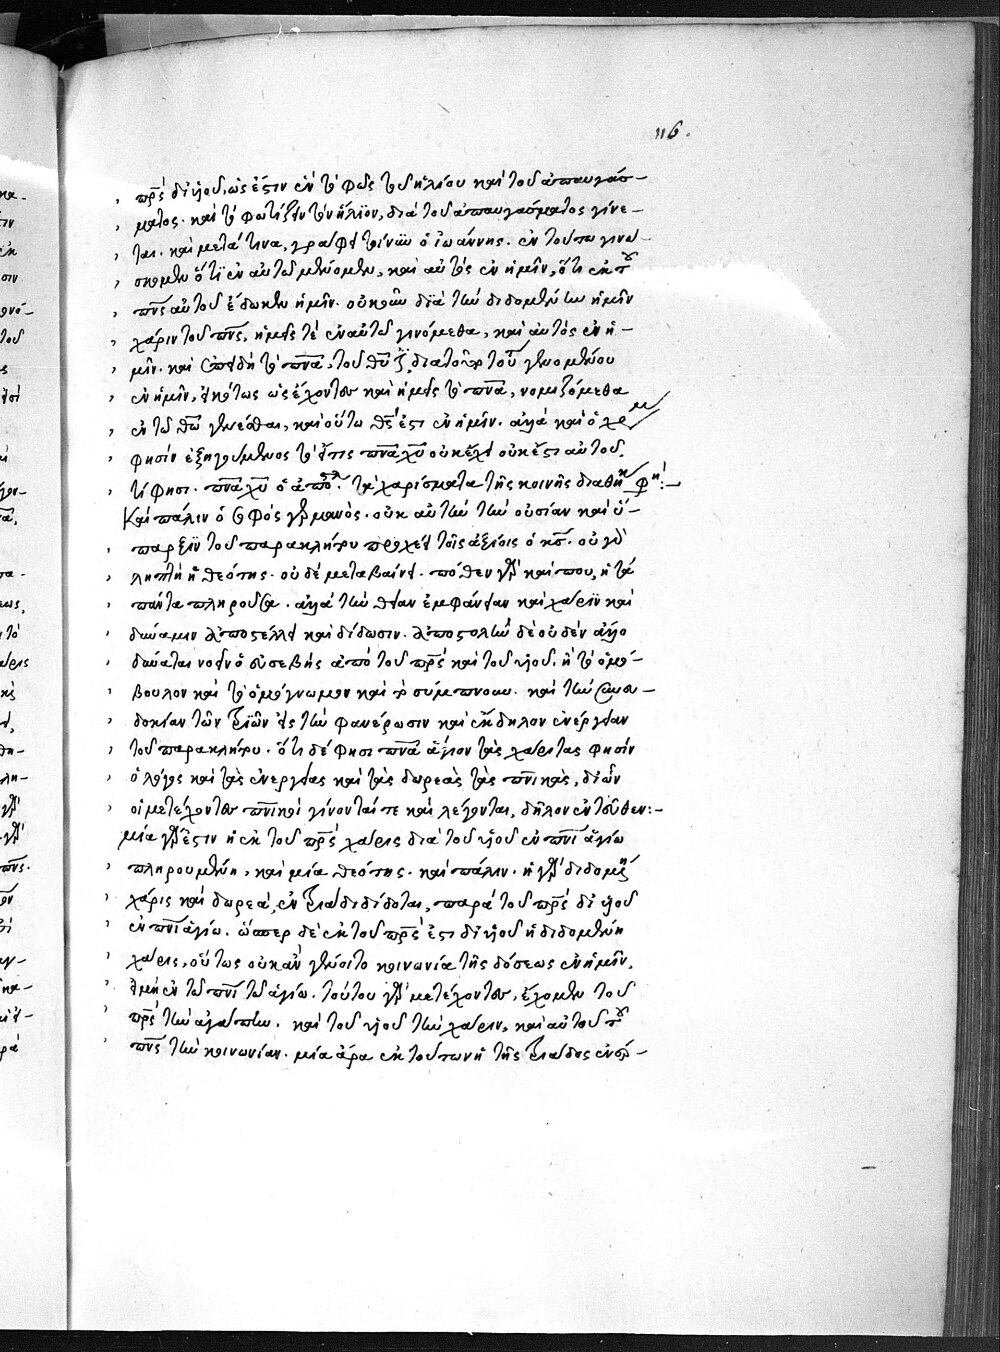 116.
πρ̅ς δι υἱοῦ, ὡς ἔστιν ἐν τὸ φῶς τοῦ ἡλίου καὶ τοῦ ἀπαυγάσ-
ματος. καὶ τὸ φωτίζειν τὸν ἥλιον, διὰ τοῦ ἀπαυγάσματος γίνε-
ται. καὶ μετά τινα, γράφει ὁ ἰωάννης. ἐν τούτω γινώ-
σκομεν ὅτι ἐν αὐτῶ μένομεν, καὶ αὐτὸς ἐν ἡμῖν, ὅτι ἐκ τοῦ
πν̅ς αὐτοῦ ἔδωκεν ἡμῖν. οὐκοῦν διὰ τὴν διδομένην ἡμῖν
χάριν τοῦ πν̅ς, ἡμεῖς τὲ ἐν αὐτῶ γινόμεθα, καὶ αὐτὸς ἐν ἡ-
μῖν. καὶ ἐπειδὴ τὸ πν̅α, τοῦ θ̅υ ἐστι, διὰ τοῦτο τοῦ γενομένου
ἐν ἡμῖν, εἰκότως ὡς ἔχοντες καὶ ἡμεῖς τὸ πν̅α, νομιζόμεθα
ἐν τῶ θ̅ω γενέσθαι, καὶ οὕτω θ̅ς ἐστι ἐν ἡμῖν. ἀλλὰ καὶ ὁ
φησὶν ἐξηγούμενος τὸ εἴ τις πν̅α χ̅υ οὐκ ἔχει οὐκ ἔστι αὐτοῦ.
τί φησι. πν̅α χ̅υ ὁ ἀπο τὰ χαρίσματα τῆς κοινῆς διαθήκης φη:-
Καὶ πάλιν ὁ σοφὸς γερμανὸς. οὐκ αὐτὴν τὴν οὐσίαν καὶ ὕ-
παρξιν τοῦ παρακλήτου προχεῖ τοῖς ἀξίοις ὁ κ̅ς. οὐ γὰρ
ληπτὴ ἡ θεότης. οὐδὲ μεταβαίνει. πόθεν γὰρ καὶ ποῦ, ἡ τὰ
πάντα πληροῦσα. ἀλλὰ τὴν θείαν ἐμφάνειαν καὶ χάριν καὶ
δύναμιν ἀποστέλλει καὶ δίδωσιν. ἀποστολὴν δὲ οὐδὲν ἄλλο
δύναται νοεῖν ὁ εὐσεβὴς ἀπὸ τοῦ πρ̅ς καὶ τοῦ υἱοῦ, ἢ τὸ ὁμό-
βουλον καὶ τὸ ὁμόγνωμον καὶ τὸ σύμπνοον. καὶ τὴν συνευ-
δοκίαν τῶν τριῶν εἰς τὴν φανέρωσιν καὶ ἔκδηλον ἐνέργειαν
τοῦ παρακλήτου. ὅτι δὲ φησι πν̅α ἅγιον τὰς χάριτας φησὶν
ὁ λόγος καὶ τὰς ἐνεργείας καὶ τὰς δωρεὰς τὰς πν̅ικὰς, δι ὧν
οἱ μετέχοντες πν̅ικοὶ γίνονταί τε καὶ λέγονται, δῆλον ἐντεῦθεν:-
μία γὰρ ἐστιν ἡ ἐκ τοῦ πρ̅ς χάρις διὰ τοῦ υἱοῦ ἐν πν̅ι ἁγίω
πληρουμένη, καὶ μία θεότης. καὶ πάλιν. ἡ γὰρ διδομένη
χάρις καὶ δωρεὰ, ἐν τριάδι δίδοται, παρὰ τοῦ πρ̅ς δι υἱοῦ
ἐν πν̅ι ἁγίω. ὥσπερ δὲ ἐκ τοῦ πρ̅ς ἐστι δι υἱοῦ ἡ διδομένη
χάρις, οὕτως οὐκ ἂν γένοιτο κοινωνία τῆς δόσεως ἐν ἡμῖν,
εἰ μὴ ἐν τῶ πν̅ι τῶ ἁγίω. τούτου γὰρ μετέχοντες, ἔχομεν τοῦ
πρ̅ς τὴν ἀγάπην. καὶ τοῦ υἱοῦ τὴν χάριν, καὶ αὐτοῦ τοῦ
πν̅ς τὴν κοινωνίαν. μία ἄρα ἐκ τούτων ἡ τῆς τριάδος ἐνέρ-